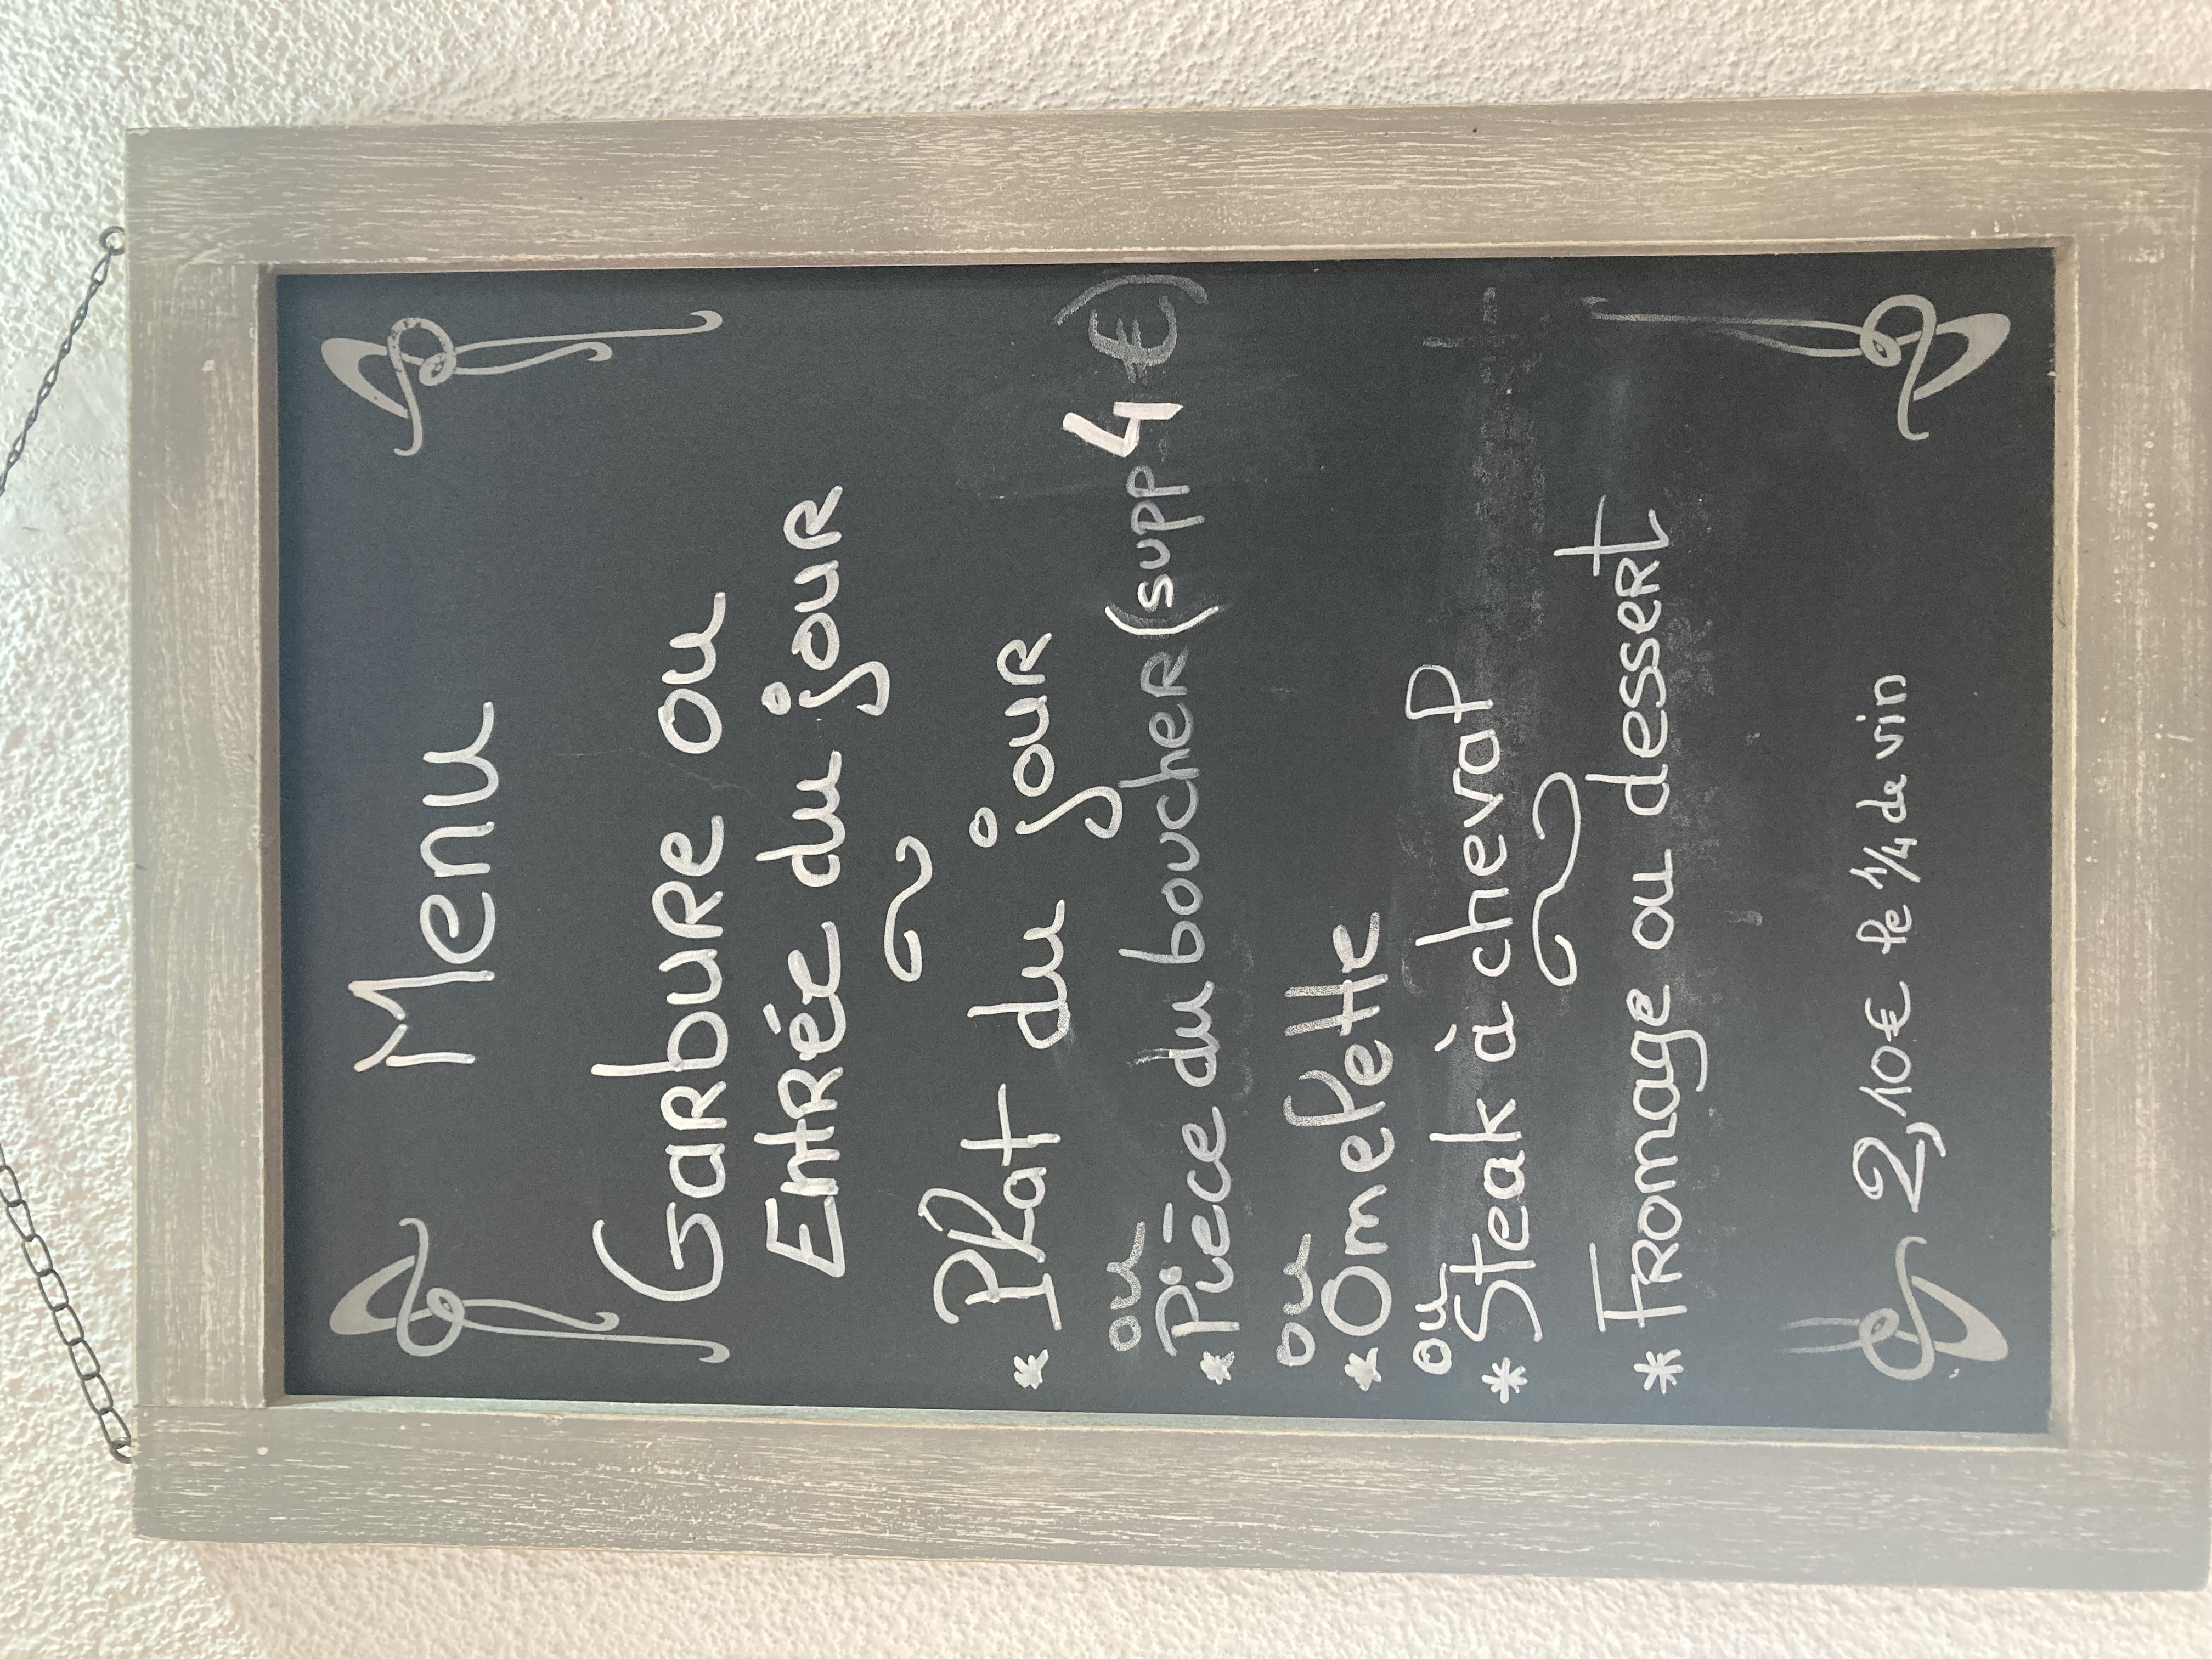 Menu
Garbure ou
Entrée du jour
* Plat du jour
ou
* Pièce du boucher (supp 4 €)
ou
* Omelette
ou
* Steak à cheval
* Fromage ou dessert
2,10€ le 1/4 de vin